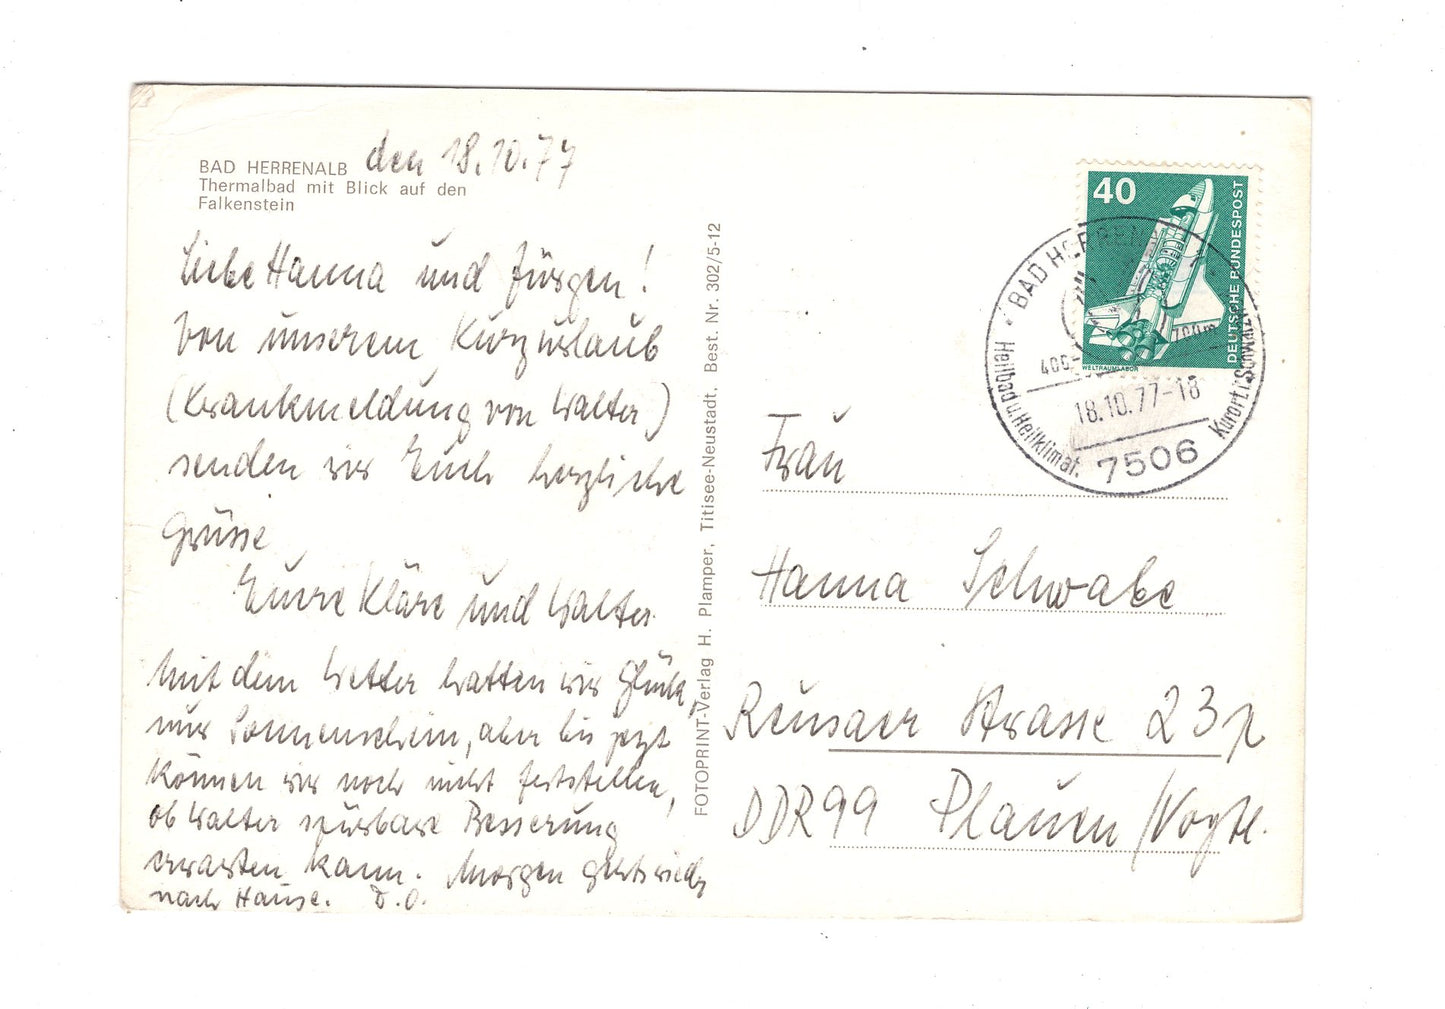 BAD HERRENALB den 18.10.77
Thermalbad mit Blick auf den
Falkenstein
Liebe Hanna und Jürgen!
Von unserem Kurzurlaub
(Krankmeldung von Walter)
senden wir Euch herzliche
Grüsse
Eure Kläre und Walter
Mit dem Wetter hatten wir Glück,
nur Sonnenschein, aber bis jetzt
können wir noch nicht feststellen,
ob Walter spürbare Besserung
erwarten kann. Morgen geht's wieder
nach Hause. D.O.
FOTOPRINT-Verlag H. Plamper, Titisee-Neustadt, Best. Nr. 302/5-12
40
DEUTSCHE BUNDESPOST
WELTRAUMLABOR
BAD HERREN
400-700m
18.10.77-18
7506
Heilbad u. Heilklimat. Kurort
Frau
Hanna Schwabe
Reusaer Strasse 23
DDR 99 Plauen/Vogtl.